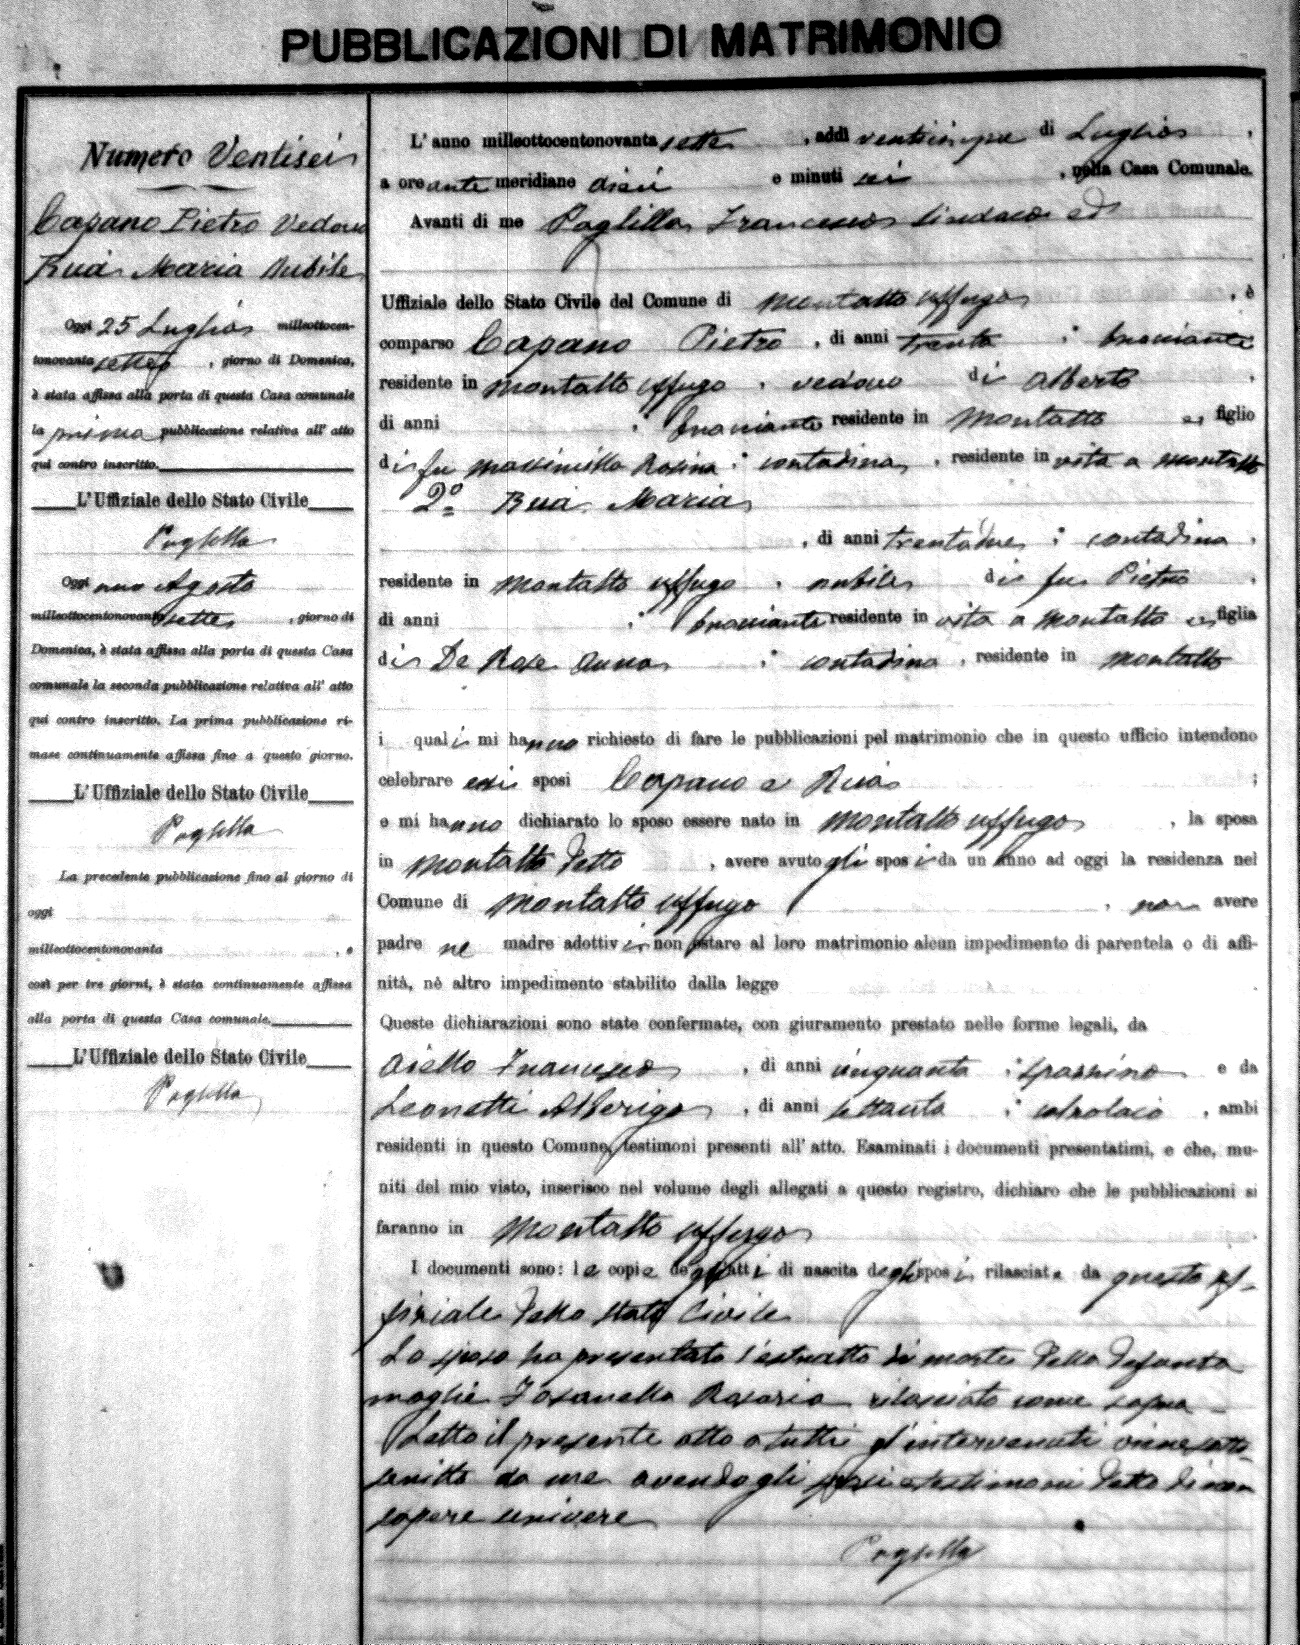 PUBBLICAZIONI DI MATRIMONIO
Numero Ventisei
Capano Pietro Vedovo
Ruà Maria Nubile
Oggi 25 Luglio milleottocen-
tonovanta sette, giorno di Domenica,
è stata affissa alla porta di questa Casa comunale
la prima pubblicazione relativa all' atto
qui contro inscritto.
L'Uffiziale dello Stato Civile
Paglilla
Oggi uno Agosto
milleottocentonovanta sette, giorno di
Domenica, è stata affissa alla porta di questa Casa
comunale la seconda pubblicazione relativa all' atto
qui contro inscritto. La prima pubblicazione ri-
mase continuamente affissa fino a questo giorno.
L'Uffiziale dello Stato Civile
Paglilla
La precedente pubblicazione fino al giorno di
oggi
milleottocentonovanta , e
così per tre giorni, è stata continuamente affissa
alla porta di questa Casa comunale.
L'Uffiziale dello Stato Civile
Paglilla
L' anno milleottocentonovanta sette, addì venticinque di Luglio,
a ore ante meridiane dieci e minuti sei, nella Casa Comunale.
Avanti di me Paglilla Francesco Sindaco ed
Uffiziale dello Stato Civile del Comune di Montalto Uffugo, è
comparso Capano Pietro, di anni trenta; bracciante
residente in Montalto Uffugo, vedovo di Alberto
di anni ; bracciante residente in Montalto e figlio
di fu Rosina; contadina, residente in vita a Montalto
2º Ruà Maria
, di anni trentadue; contadina,
residente in Montalto Uffugo, nubile di fu Pietro,
di anni ; bracciante residente in vita a Montalto e figlia
di De Rose Anna; contadina, residente in Montalto
i quali mi hanno richiesto di fare le pubblicazioni pel matrimonio che in questo ufficio intendono
celebrare essi sposi Capano e Ruà;
e mi hanno dichiarato lo sposo essere nato in Montalto Uffugo, la sposa
in Montalto detto, avere avuto gli sposi da un anno ad oggi la residenza nel
Comune di Montalto Uffugo, non avere
padre ne madre adottivi non ostare al loro matrimonio alcun impedimento di parentela o di affi-
nità, nè altro impedimento stabilito dalla legge
Queste dichiarazioni sono state confermate, con giuramento prestato nelle forme legali, da
Aiello Francesco, di anni cinquanta; spazzino e da
Leonetti Alberigo, di anni settanta; calzolaio, ambi
residenti in questo Comune, testimoni presenti all' atto. Esaminati i documenti presentatimi, e che, mu-
niti del mio visto, inserisco nel volume degli allegati a questo registro, dichiaro che le pubblicazioni si
faranno in Montalto Uffugo
I documenti sono: le copie degli atti di nascita degli sposi, rilasciate da questo Uf-
fiziale dello Stato Civile
Lo sposo ha presentato l'estratto di morte della defunta
moglie Rosaria rilasciato come sopra -
Letto il presente atto a tutti gl'intervenuti viene sotto-
scritto da me avendo gli sposi e testimoni detto di non
sapere scrivere
Paglilla